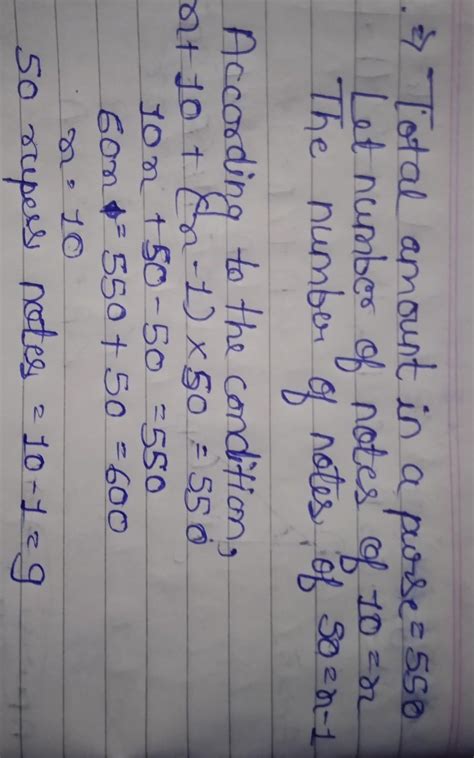 .⇒ Total amount in a purse = 550
Let number of notes of 10 = x
The number of notes of 50 = x-1
According to the condition,
x+10+(x-1)×50 = 550
10x + 50-50 = 550
60x = 550+50 = 600
x = 10
50 rupess notes = 10-1 = 9